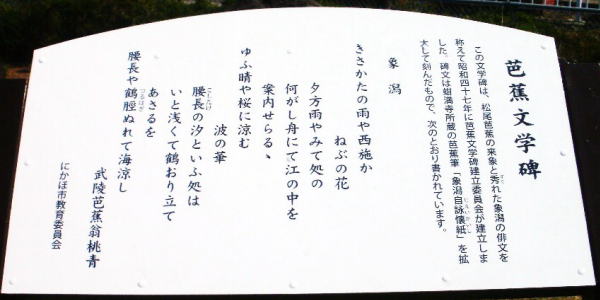 芭蕉文学碑
この文学碑は、松尾芭蕉の来象と秀れた象潟の俳文を
称えて昭和四十七年に芭蕉文学碑建立委員会が建立しま
した。碑文は蚶満寺所蔵の芭蕉筆「象潟自詠懐紙」を拡
大して刻んだもので、次のとおり書かれています。
象潟
きさかたの雨や西施か
ねぶの花
夕方雨やみて処の
何がし舟にて江の中を
案内せらるゝ
ゆふ晴や桜に涼む
波の華
腰長の汐といふ処は
いと浅くて鶴おり立て
あさるを
腰長や鶴脛ぬれて海涼し
武陵芭蕉翁桃青
にかほ市教育委員会